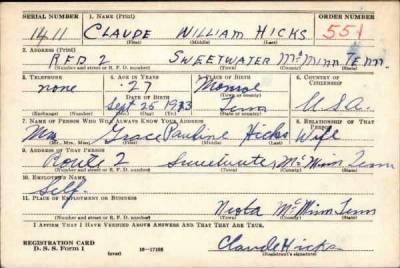 SERIAL NUMBER 1. NAME (Print) ORDER NUMBER
1411 CLAUDE WILLIAM HICKS 551
(First) (Middle) (Last)
2. ADDRESS (Print)
RFD 2 SWEETWATER McMinn Tenn.
(Number and street or R. F. D. number) (Town) (County) (State)
3. TELEPHONE 4. AGE IN YEARS 5. PLACE OF BIRTH 6. COUNTRY OF CITIZENSHIP
none 27 Monroe
DATE OF BIRTH (Town or county)
Sept 25 1913 Tenn U.S.A.
(Exchange) (Number) (Mo.) (Day) (Yr.) (State or country)
7. NAME OF PERSON WHO WILL ALWAYS KNOW YOUR ADDRESS 8. RELATIONSHIP OF THAT PERSON
Mrs Grace Pauline Hicks Wife
(Mr., Mrs., Miss) (First) (Middle) (Last)
9. ADDRESS OF THAT PERSON
Route 2 Sweetwater McMinn Tenn
(Number and street or R. F. D. number) (Town) (County) (State)
10. EMPLOYER'S NAME
Self.
11. PLACE OF EMPLOYMENT OR BUSINESS
Niota McMinn Tenn
(Number and street or R. F. D. number) (Town) (County) (State)
I AFFIRM THAT I HAVE VERIFIED ABOVE ANSWERS AND THAT THEY ARE TRUE.
REGISTRATION CARD
D. S. S. Form 1 (over) 16—17105 Claude Hicks
(Registrant's signature)